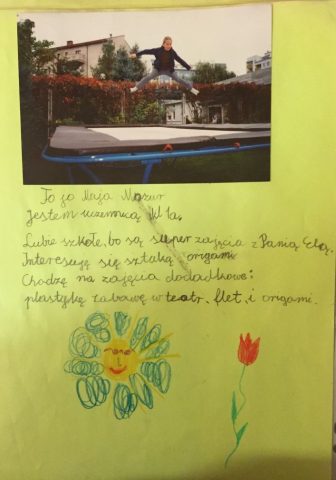 To ja Maja Mazur
Jestem uczennicą kl 1a.
Lubię szkołę, bo są super zajęcia z Panią Elą.
Interesuję się sztuką origami
Chodzę na zajęcia dodadkowe:
plastykę zabawę w teatr, flet, i origami.